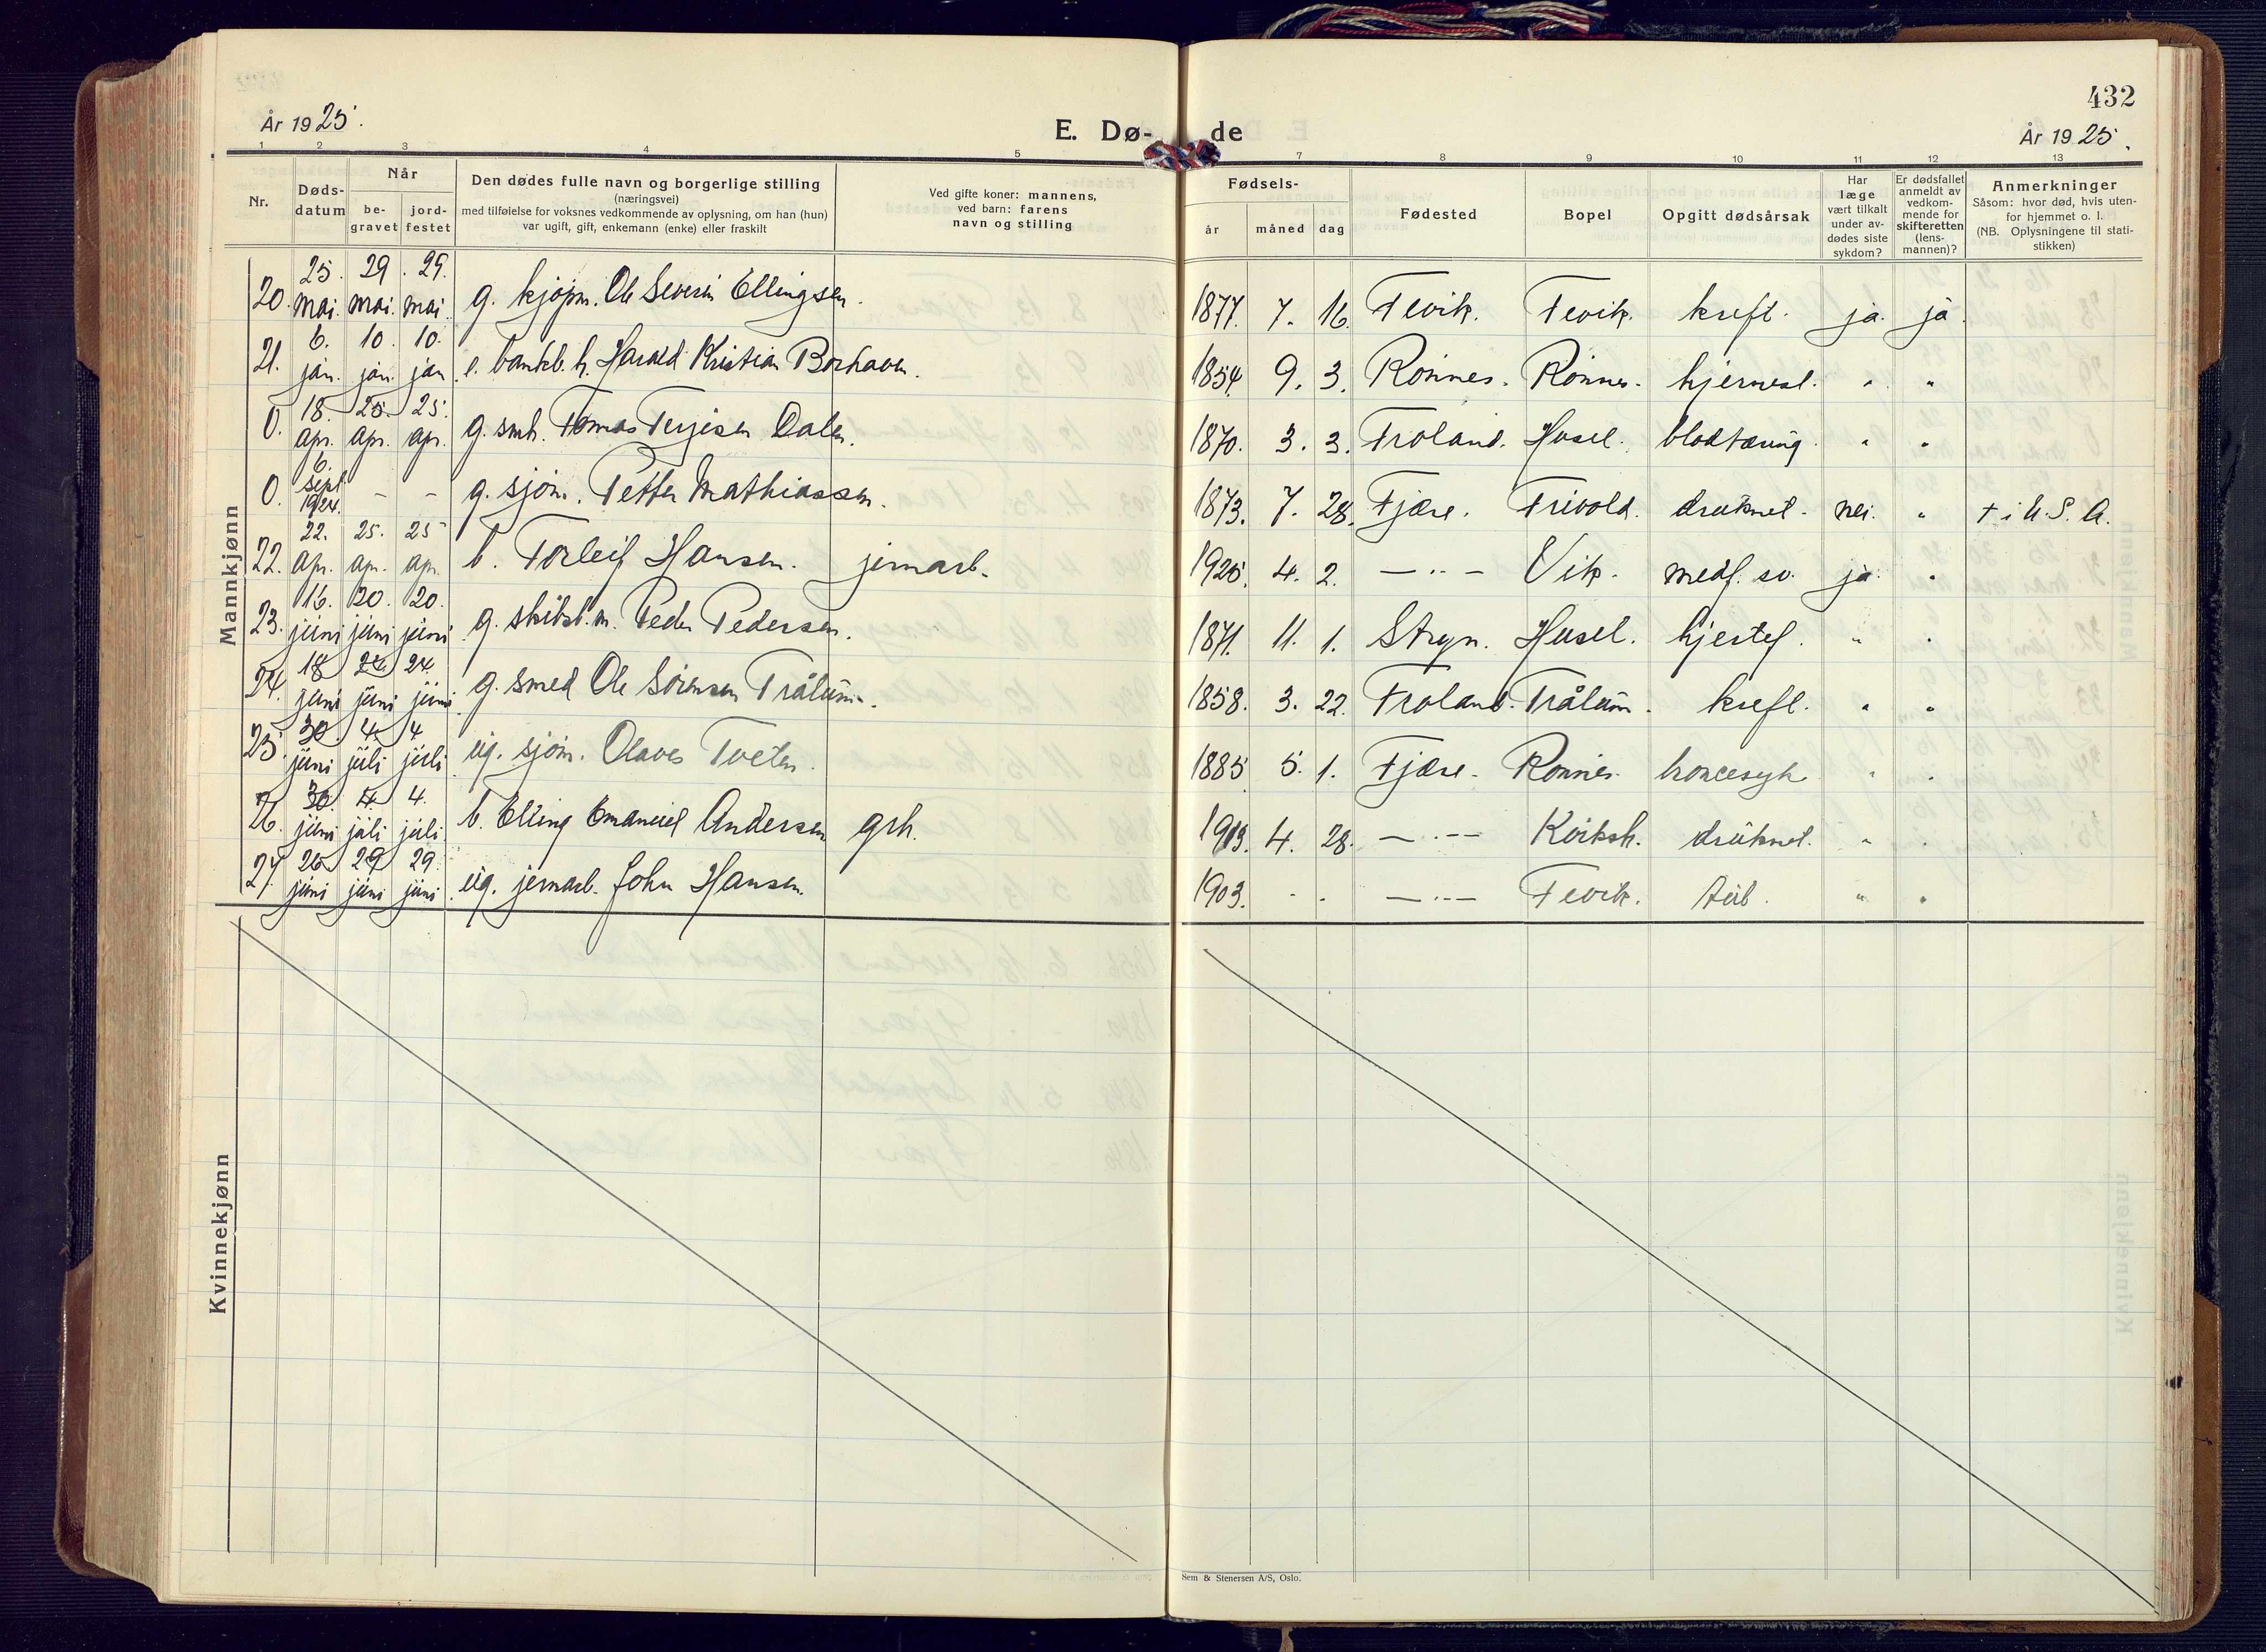 432
År 1925.
E. Dø-de
År 1925.
1 2 3 4 5 7 8 9 10 11 12 13
Nr.
Døds-datum
Når
be-gravet
jord-festet
Den dødes fulle navn og borgerlige stilling
(næringsvei)
med tilføielse for voksnes vedkommende av oplysning, om han (hun)
var ugift, gift, enkemann (enke) eller fraskilt
Ved gifte koner: mannens,
ved barn: farens
navn og stilling
Fødsels-
år måned dag
Fødested
Bopel
Opgitt dødsårsak
Har
læge
vært tilkalt
under av-
dødes siste
sykdom?
Er dødsfallet
anmeldt av
vedkom-
mende for
skifteretten
(lens-
mannen)?
Anmerkninger
Såsom: hvor død, hvis uten-
for hjemmet o. l.
(NB. Oplysningene til stati-
stikken)
Mannkjønn
20. 25. mai. 29. mai. 29. mai. g. kjøpm. Ole Severin Ellingsen. 1877. 7. 16. Fevik. Fevik. kreft. ja. ja.
21. 6. jan. 10. jan. 10. jan. e. bankb. h. Harald Kristian Borhaven. 1854. 9. 3. Rønnes. Rønnes. hjernesl. " "
0. 18. apr. 25. apr. 25. apr. g. smh. Tomas Terjesen Dalen. 1870. 3. 3. Froland. Hasel. blodtæring. " "
0. 6. sept. 1924. - - g. sjøm. Petter Mathiassen. 1873. 7. 28. Fjære. Frivold. druknet. nei. " + i U. S. A.
22. 22. apr. 25. apr. 25 apr. b. Torleif Hansen. jernarb. 1925. 4. 2. —"— Vik. medf. sv. ja. "
23. 16. juni 20. juni 20. juni g. skibst.m. Peder Pedersen. 1871. 11. 1. Stryn. Hasel. hjertef. " "
24. 18 juni 24. juni 24. juni g. smed Ole Sørensen Trålum. 1858. 3. 22. Froland. Trålum. kreft. " "
25. 30. juni 4. juli 4 juli ug. sjøm. Olaves Tveten. 1885 5. 1. Fjære. Rønnes. " "
26. 30. juni 4. juli 4. juli b. Elling Emanuel Andersen grh. 1913. 4. 28. —"— druknet. " "
27. 26 juni 29 juni 29. juni ug. jernarb. John Hansen. 1903. - - —"— Fevik. tub. " "
Kvinnekjønn
Sem & Stenersen A/S, Oslo.